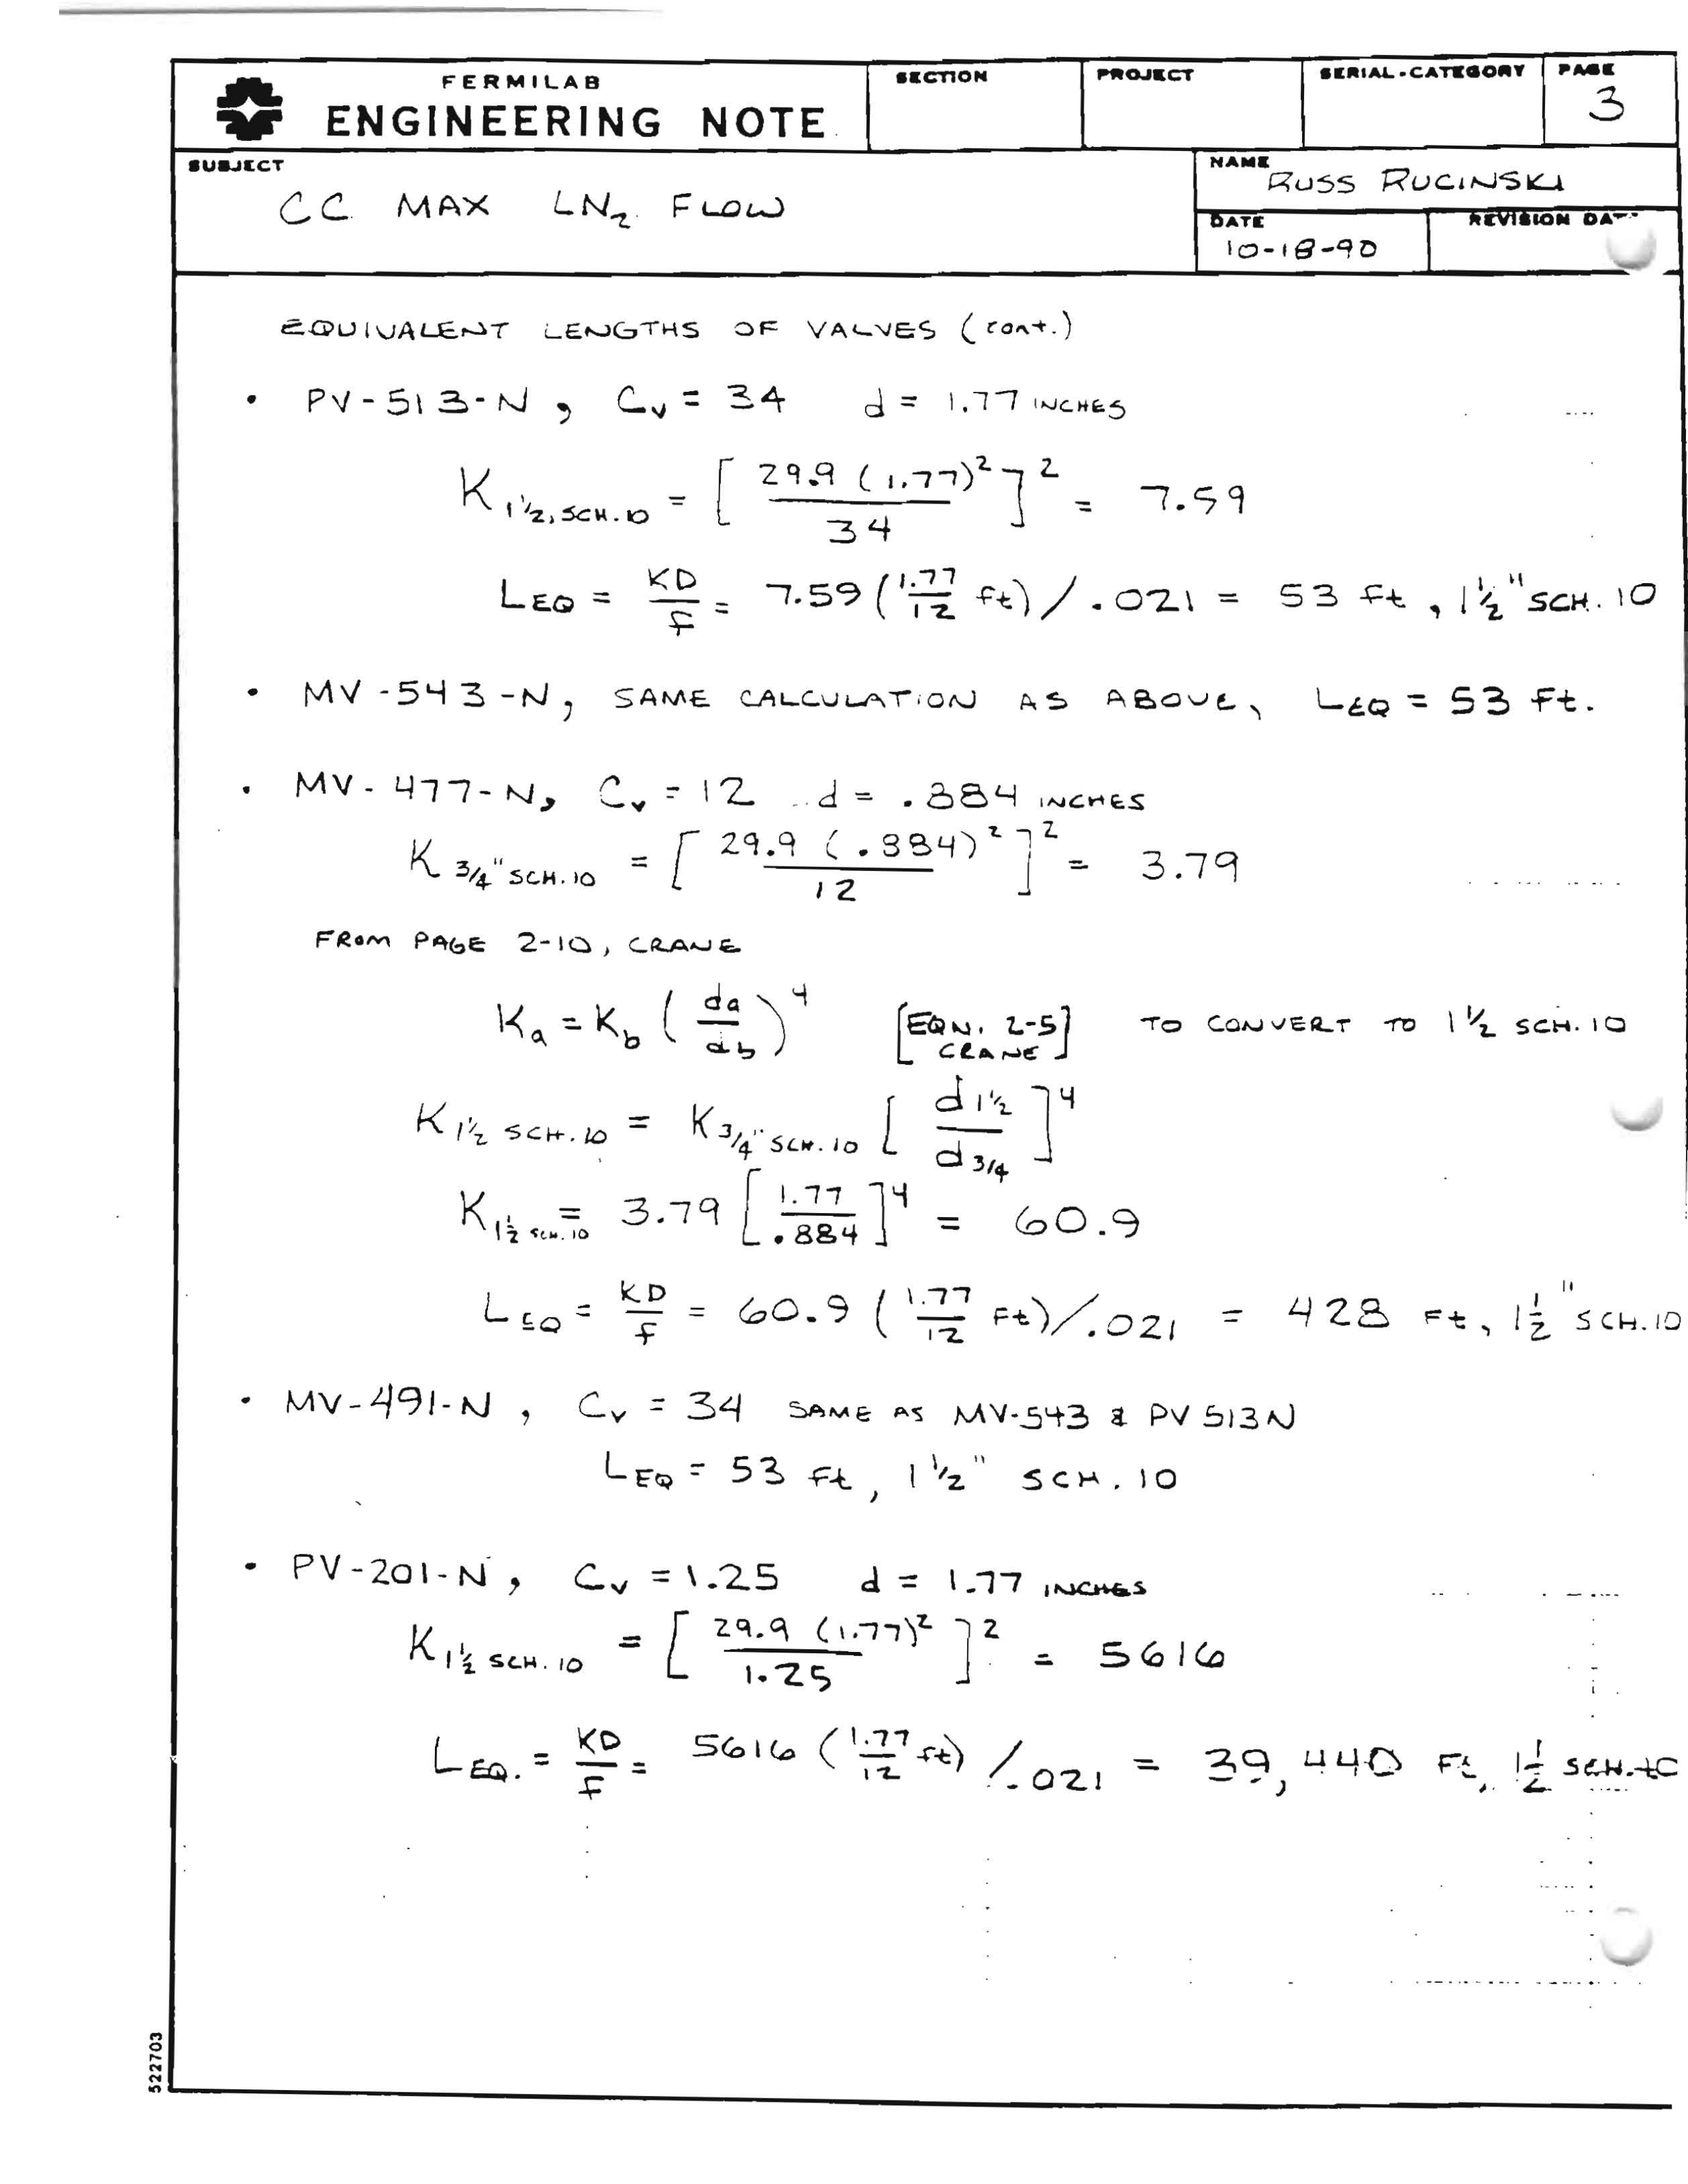 FERMILAB
ENGINEERING NOTE
SECTION
PROJECT
SERIAL-CATEGORY
PAGE
3
SUBJECT
CC MAX LN₂ FLOW
NAME
RUSS RUCINSKI
DATE
10-18-90
REVISION DA
EQUIVALENT LENGTHS OF VALVES (cont.)
• PV-513-N, Cv = 34 d = 1.77 INCHES
K 1½, SCH. 10 = [ 29.9 (1.77)² / 34 ]² = 7.59
LEQ = KD/f = 7.59 (1.77/12 ft) / .021 = 53 ft, 1½" SCH. 10
• MV-543-N, SAME CALCULATION AS ABOVE, LEQ = 53 Ft.
• MV-477-N, Cv = 12 d = .884 INCHES
K 3/4" SCH. 10 = [ 29.9 (.884)² / 12 ]² = 3.79
FROM PAGE 2-10, CRANE
Ka = Kb (da/db)⁴ [EQN. 2-5 CRANE] TO CONVERT TO 1½ SCH. 10
K 1½ SCH. 10 = K 3/4" SCH. 10 [ d 1½ / d 3/4 ]⁴
K 1½ SCH. 10 = 3.79 [ 1.77 / .884 ]⁴ = 60.9
LEQ = KD/f = 60.9 (1.77/12 Ft) / .021 = 428 Ft, 1½" SCH. 10
• MV-491-N, Cv = 34 SAME AS MV-543 & PV 513N
LEQ = 53 Ft, 1½" SCH. 10
• PV-201-N, Cv = 1.25 d = 1.77 INCHES
K 1½ SCH. 10 = [ 29.9 (1.77)² / 1.25 ]² = 5616
LEQ. = KD/f = 5616 (1.77/12 ft) / .021 = 39,440 Ft, 1½ SCH. 10
522703